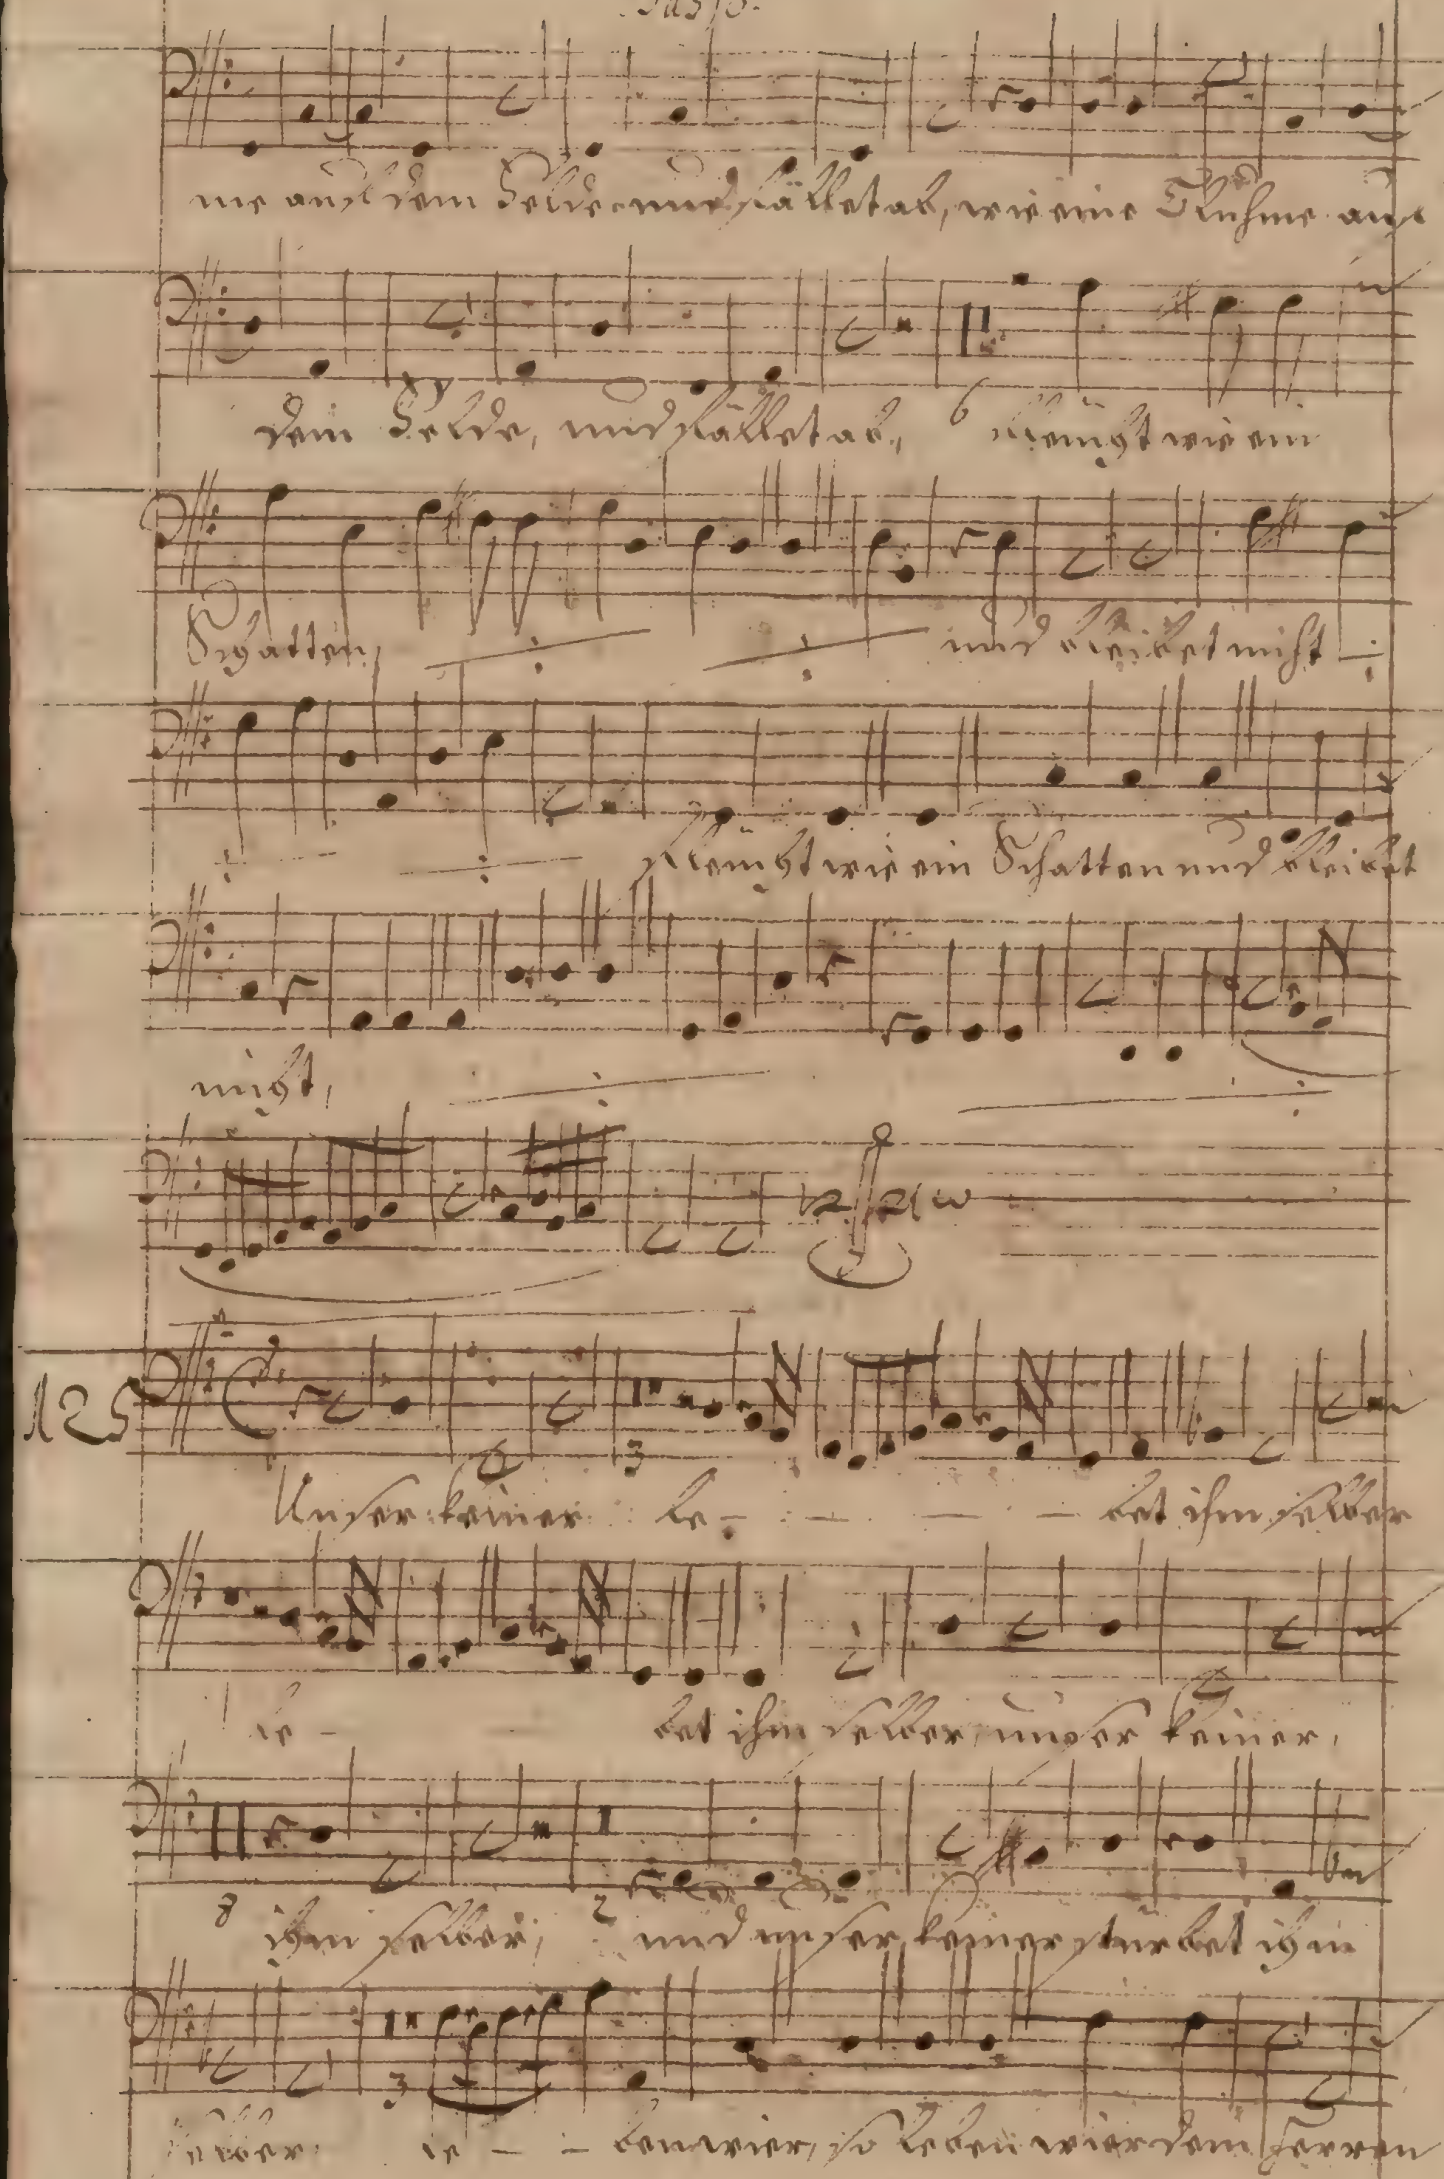 Basso.
me auff dem Felde und fället ab, wie eine Bluhme auff
dem Felde, und fället ab, 6 fleugt wie ein
Schatten, und bleibet nicht
fleugt wie ein Schatten und bleibet
nicht,
125
3
Unser keiner le - - - - bet ihm selber
le - bet ihm selber, unser keiner,
8 ihm selber, 2 und unser keiner sturbet ihm
3
selber le - - ben wier, so leben wier dem Herren